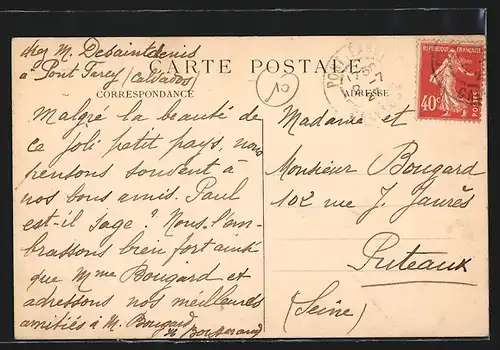 chez M. Desaintdenis
à Pont Farcy (Calvados)
CARTE POSTALE
CORRESPONDANCE
ADRESSE
10
RÉPUBLIQUE FRANÇAISE
40c
POSTES
Malgré la beauté de
ce joli petit pays, nous
pensons souvent à
nos bons amis. Paul
est-il sage ? Nous l'em-
brassons bien fort ainsi
que Mme Bougard et
adressons nos meilleures
amitiés à M. Bougard
Madame et
Monsieur Bougard
102 rue J. Jaurès
Puteaux
(Seine)